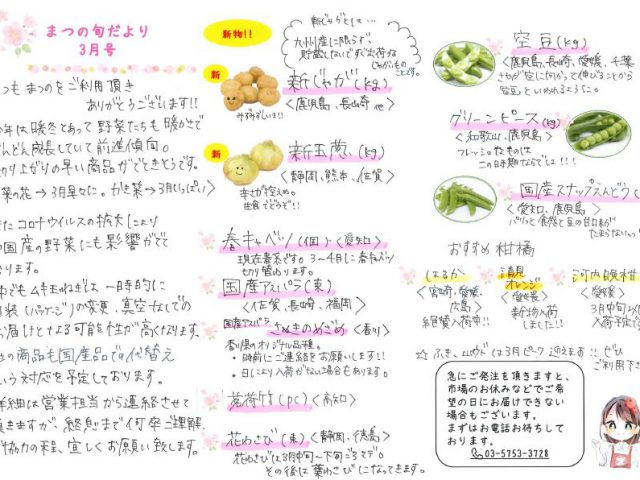 まつの旬だより
3月号
つも まつのをご利用頂き
ありがとうございます!!
年は暖冬とあって 野菜たちも暖かさで
どんどん成長していて 前進傾向。
切り上がりの早い商品がでてきそうです。
菜の花→3月早々に。かき菜→3月いっぱい
たコロナウイルスの拡大により
中国産の野菜にも影響がでて
おります。
中でも ムキ玉ねぎは 一時的に
形状(パッケージ)の変更、真空なしでの
お届けとなる可能性が高くなります。
他の商品も国産品での代替え
という対応を予定しております。
詳細は営業担当から連絡させて
頂きますが、終息まで何卒ご理解、
ご協力の程、宜しくお願い致します。
新物!!
新じゃがとして…
九州産に限らず、
貯蔵しないですぐ出荷する
じゃがいものことです。
新
新じゃが(kg)
<鹿児島、長崎 他>
みずみずしいよ!!
新
新玉葱(kg)
<静岡、熊本、佐賀>
辛さが控えめ。
生食でどうぞ!!
春キャベツ(個)<愛知>
現在寒系です。3〜4日に春キャベツ
切り替わります。
国産アスパラ(束)
<佐賀、長崎、福岡>
国産アスパラ
さぬきのめざめ<香川>
香川県のオリジナル品種。
・時前にご連絡をお願いします!!
・日により入荷がない場合もあります。
茗荷竹(pc)<高知>
花わさび(束)<静岡、徳島>
花わさびは3月中旬〜下旬ごろまで。
その後は葉わさびになってきます。
空豆(kg)
<鹿児島、長崎、愛媛、千葉
さやが空に向かって伸びることから
空豆といわれるそうに。
グリーンピース(kg)
<和歌山、鹿児島>
フレッシュなものは
この時期ならでは!!!
国産スナップえんどう
<愛知、鹿児島>
パリッと食感と豆の甘さが
たまらないっ
おすすめ 柑橘
はるか
<宮崎・愛媛・
広島>
絶賛入荷中!!
清見
オレンジ
<愛媛>
新物入荷
しました!!
河内晩柑
<愛媛>
3月中旬
入荷予定
☆ふき、山ウドは3月ピーク迎えます!! ぜひ
ご利用下さ
急にご発注を頂きますと、
市場のお休みなどでご希
望の日にお届けできない
場合もございます。
まずはお電話お待ちして
おります。
03-5753-3728